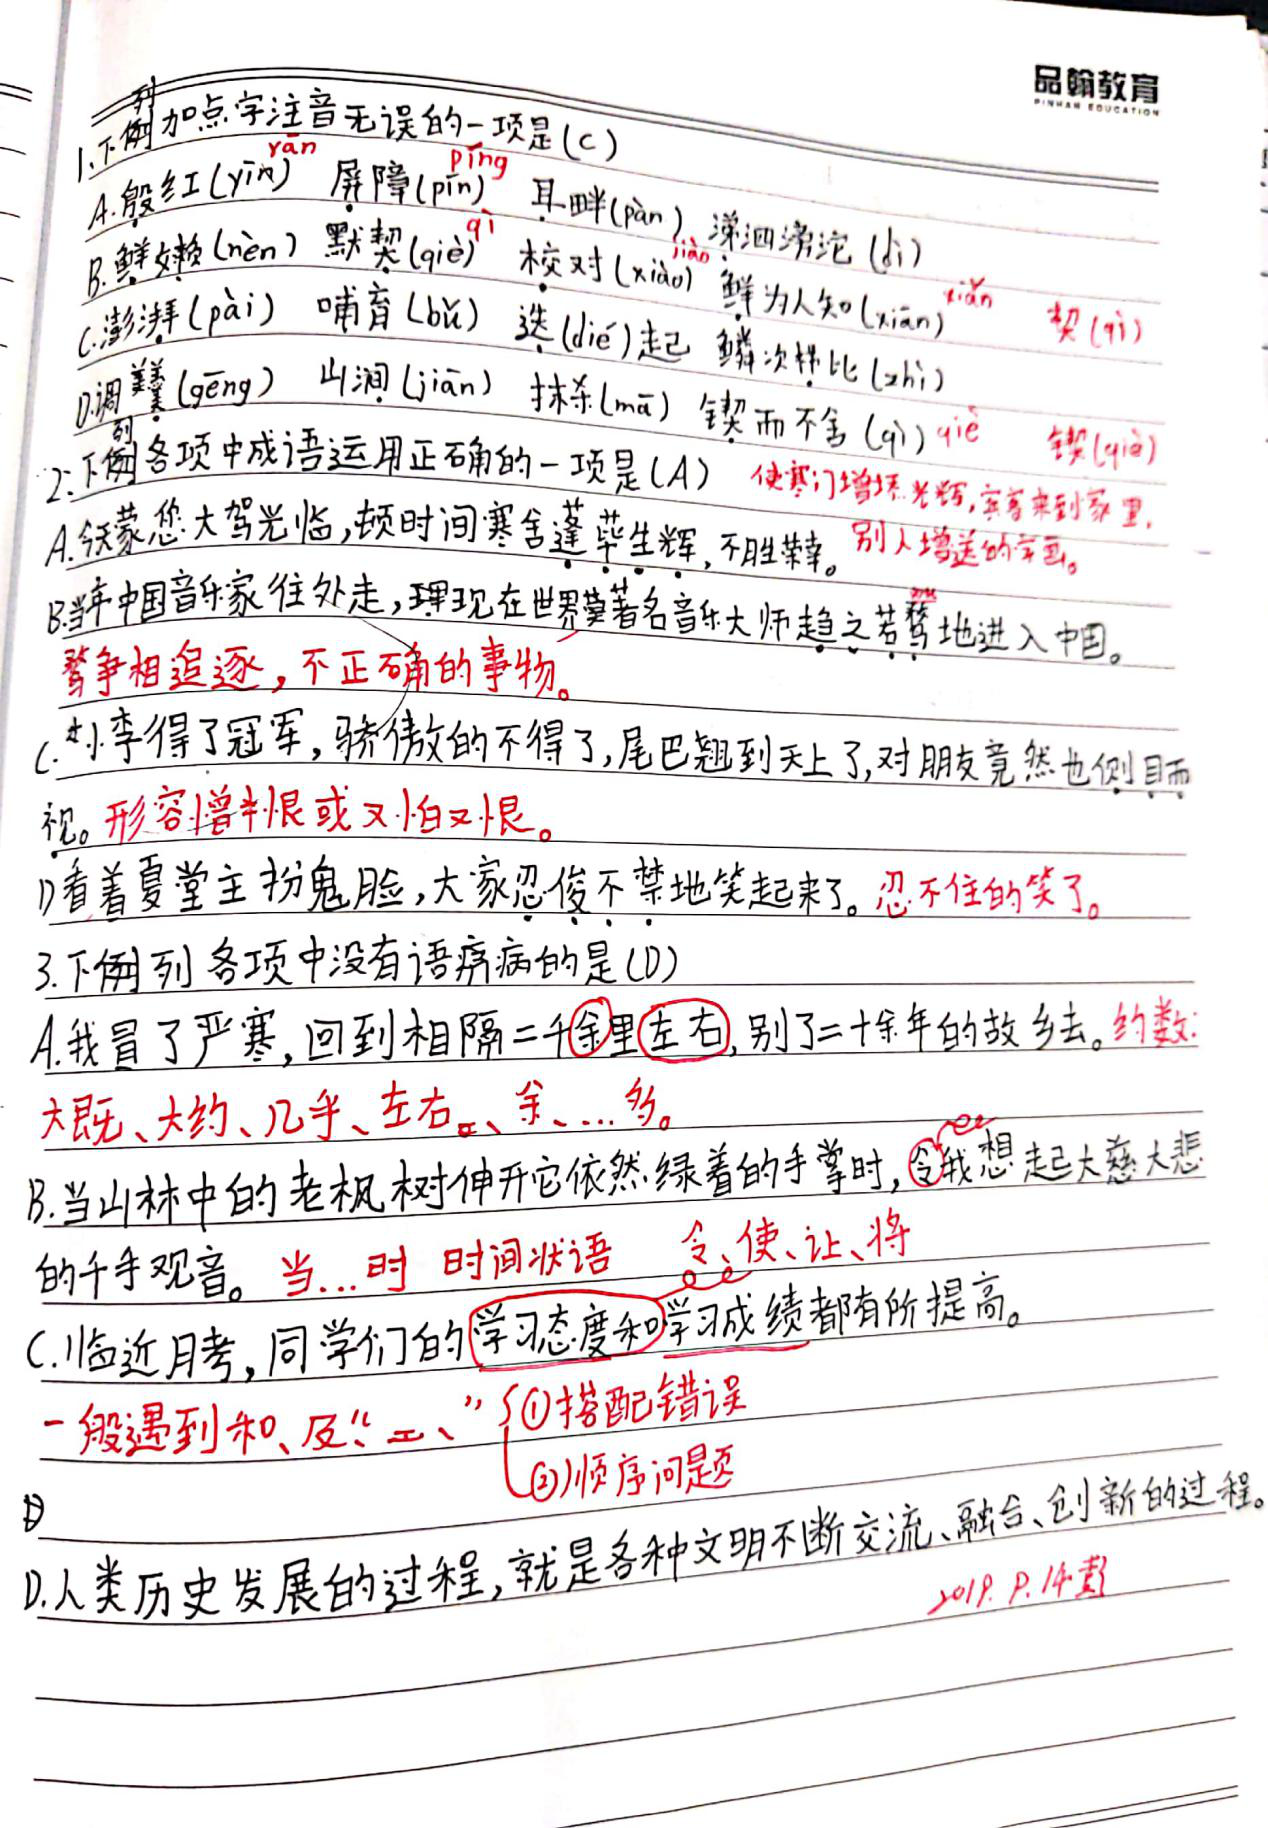 品翰教育
PINHAN EDUCATION
列
1.下例加点字注音无误的一项是(C)
yān
pīng
A.殷红(yīn) 屏障(pīn) 耳畔(pàn) 涕泗滂沱(dì)
qì
jiào
B.鲜嫩(nèn) 默契(qiè) 校对(xiào) 鲜为人知(xiān) xiǎn 契(qì)
C.澎湃(pài) 哺育(bǔ) 迭(dié)起 鳞次栉比(zhì)
D.调羹(gēng) 山涧(jiān) 抹杀(mā) 锲而不舍(qì) qiè 锲(qiè)
列
2.下例各项中成语运用正确的一项是(A) 使寒门增添光辉,宾客来到家里,
A.今天蒙您大驾光临,顿时间寒舍蓬荜生辉,不胜荣幸。 别人增送的字画。
B.当年中国音乐家往处走,理现在世界著名音乐大师趋之若鹜地进入中国。
鹜争相追逐,不正确的事物。
C.小李得了冠军,骄傲的不得了,尾巴翘到天上了,对朋友竟然也侧目而
视。形容憎恨或又怕又恨。
D看着夏堂主扮鬼脸,大家忍俊不禁地笑起来了。忍不住的笑了。
3.下例列各项中没有语病的是(D)
A.我冒了严寒,回到相隔二千余里左右,别了二十余年的故乡去。约数:
大既、大约、几乎、左右、余、…多。
B.当山林中的老枫树伸开它依然绿着的手掌时,令我想起大慈大悲
的千手观音。 当…时 时间状语 令、使、让、将
C.临近月考,同学们的学习态度和学习成绩都有所提高。
一般遇到和、及“、” ①搭配错误
②顺序问题
D
D.人类历史发展的过程,就是各种文明不断交流、融合、创新的过程。
2019.9.14